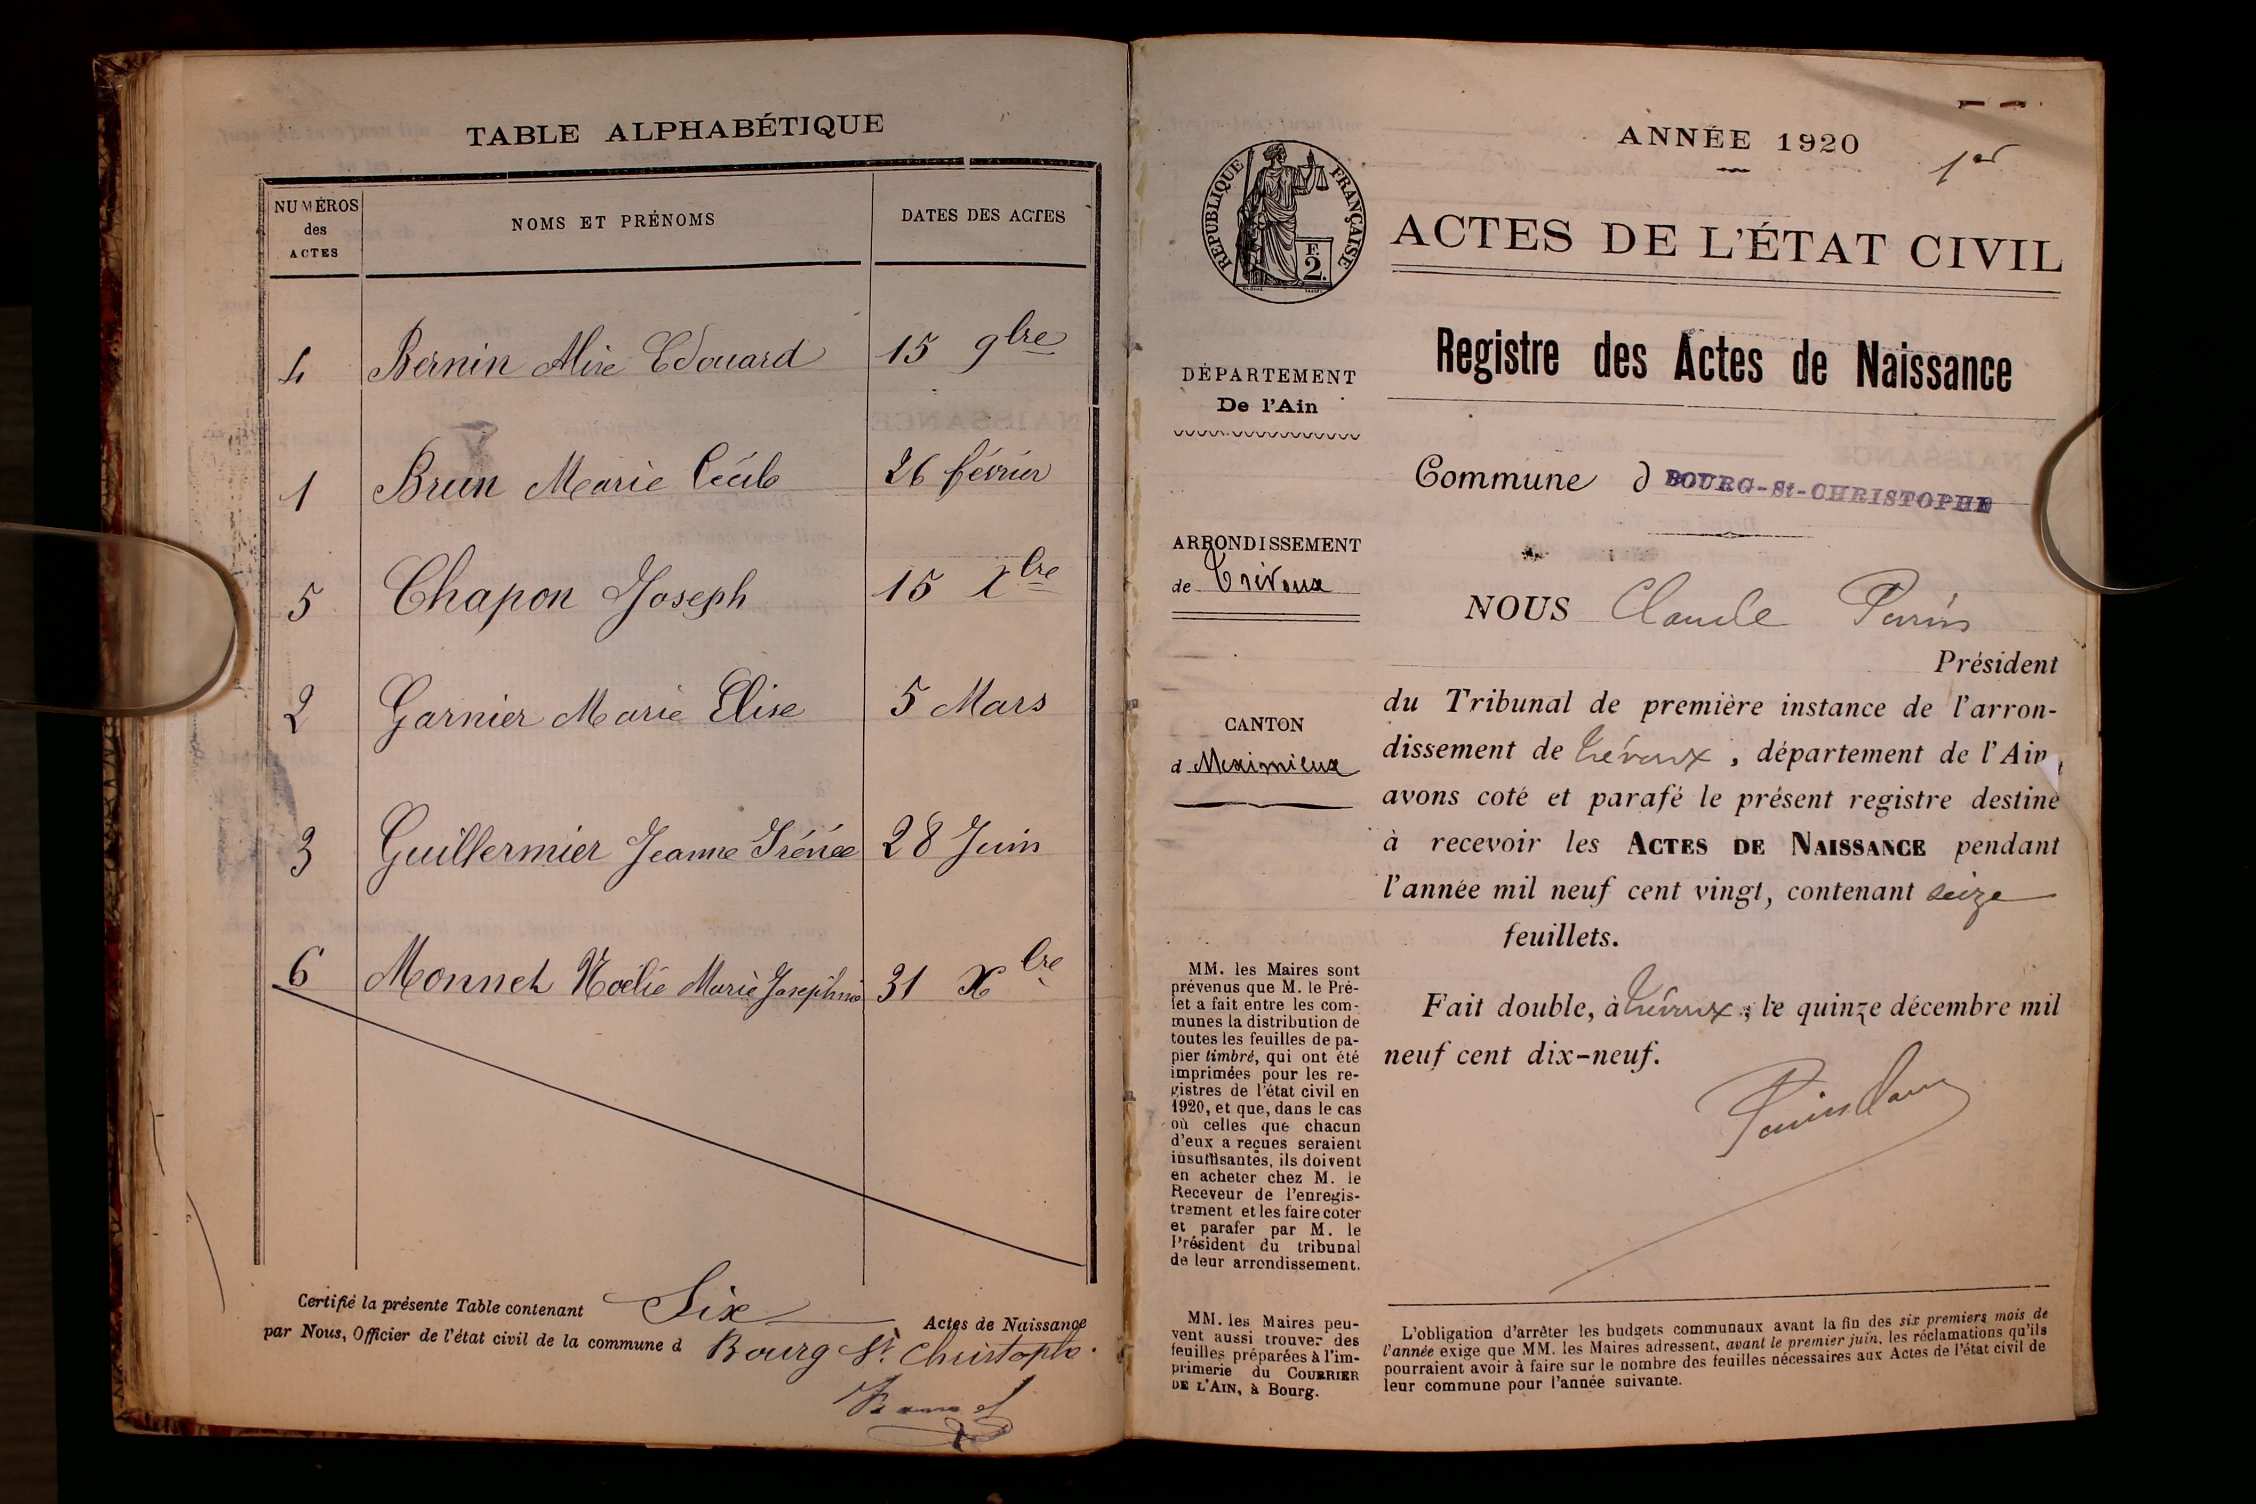 TABLE ALPHABÉTIQUE
NUMÉROS
des
ACTES
NOMS ET PRÉNOMS
DATES DES ACTES
4 Bernin Alix Edouard 15 9bre
1 Brun Marie Cécile 26 février
5 Chapon Joseph 15 Xbre
2 Garnier Marie Elise 5 Mars
3 Guillermier Jeanne Irénée 28 Juin
6 Monnet Noëlie Marie Josephine 31 Xbre
Certifié la présente Table contenant Six Actes de Naissance
par Nous, Officier de l'état civil de la commune d Bourg St Christophe.
ANNÉE 1920
1er
RÉPUBLIQUE FRANÇAISE
F.
2.
ACTES DE L'ÉTAT CIVIL
Registre des Actes de Naissance
DÉPARTEMENT
De l'Ain
Commune d BOURG-St-CHRISTOPHE
ARRONDISSEMENT
de Trévoux
CANTON
d Meximieux
NOUS Claude Perrin
Président
du Tribunal de première instance de l'arron-
dissement de Trévoux, département de l'Ain,
avons coté et parafé le présent registre destiné
à recevoir les ACTES DE NAISSANCE pendant
l'année mil neuf cent vingt, contenant seize
feuillets.
Fait double, à Trévoux, le quinze décembre mil
neuf cent dix-neuf.
MM. les Maires sont
prévenus que M. le Pré-
fet a fait entre les com-
munes la distribution de
toutes les feuilles de pa-
pier timbré, qui ont été
imprimées pour les re-
gistres de l'état civil en
1920, et que, dans le cas
où celles que chacun
d'eux a reçues seraient
insuffisantes, ils doivent
en acheter chez M. le
Receveur de l'enregis-
trement et les faire coter
et parafer par M. le
Président du tribunal
de leur arrondissement.
MM. les Maires peu-
vent aussi trouver des
feuilles préparées à l'im-
primerie du COURRIER
DE L'AIN, à Bourg.
L'obligation d'arrêter les budgets communaux avant la fin des six premiers mois de
l'année exige que MM. les Maires adressent, avant le premier juin, les réclamations qu'ils
pourraient avoir à faire sur le nombre des feuilles nécessaires aux Actes de l'état civil de
leur commune pour l'année suivante.